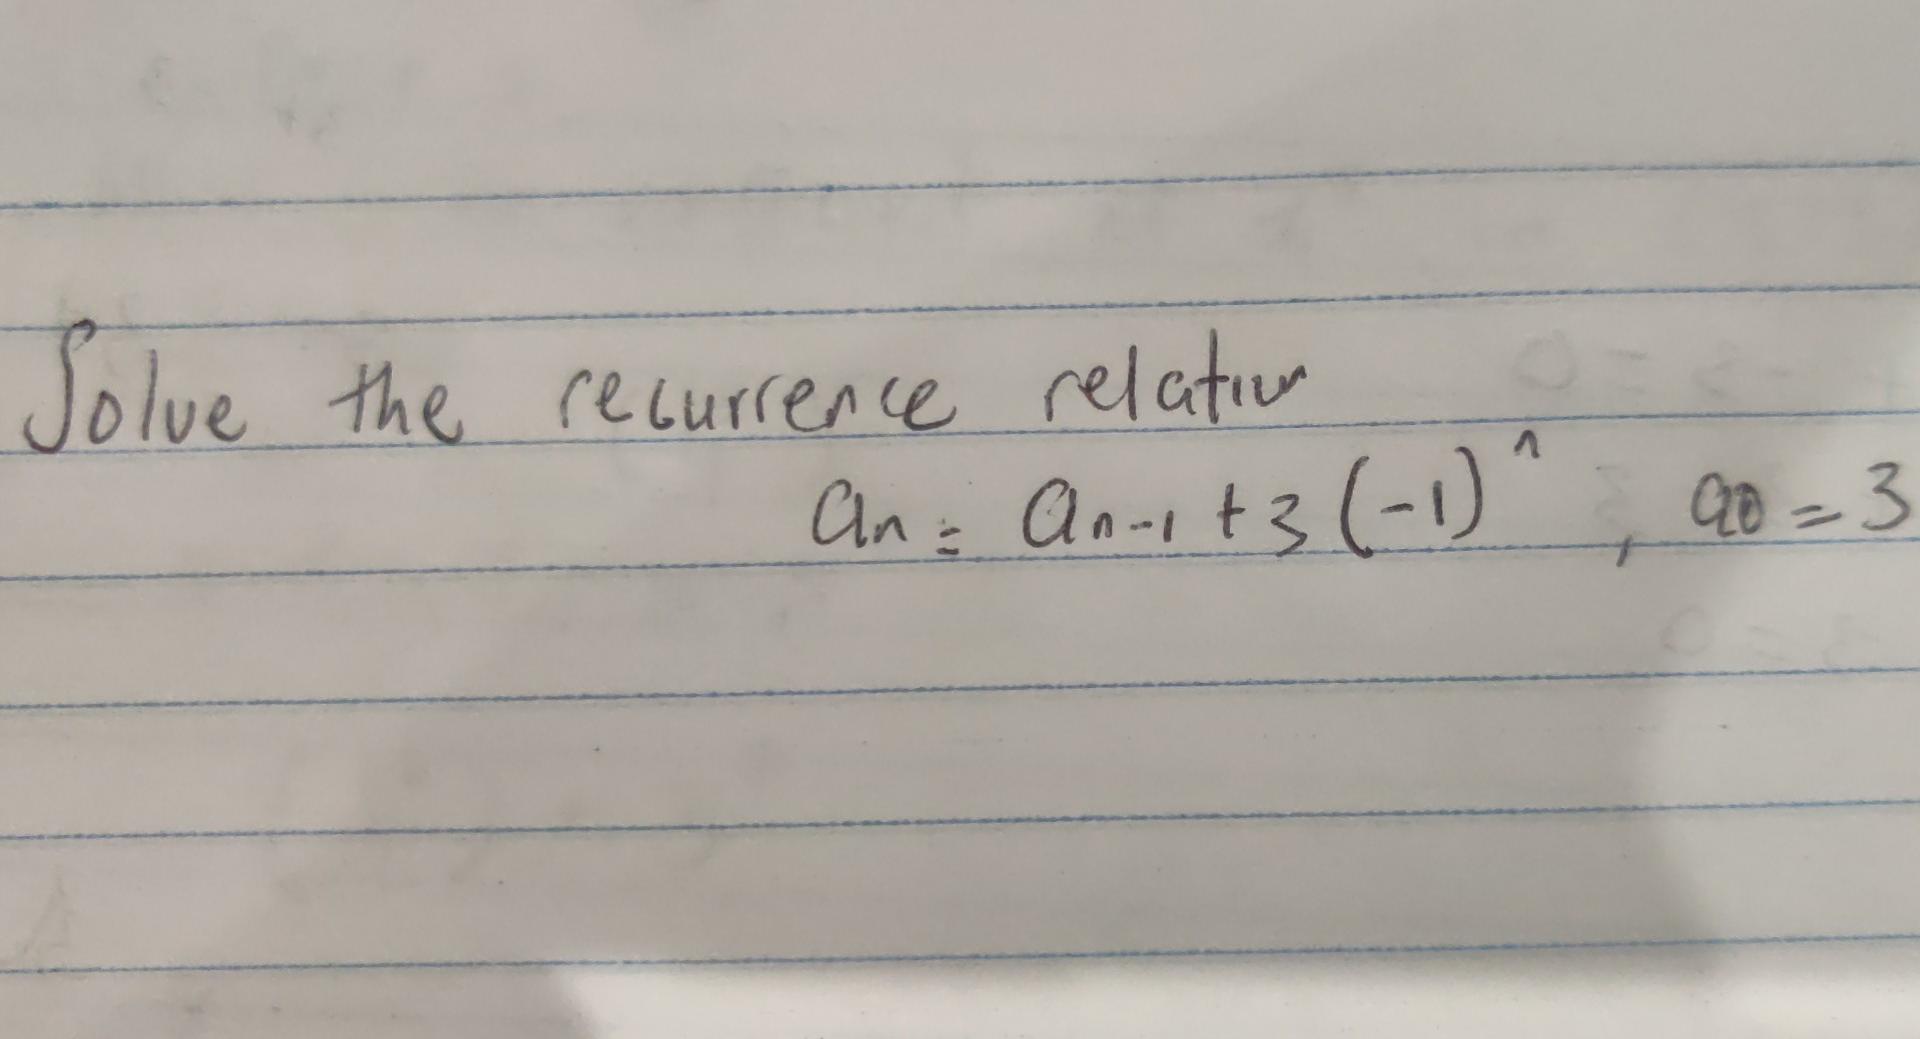 Solve the recurrence relation
an = an-1 + 3 (-1)^n , a0 = 3